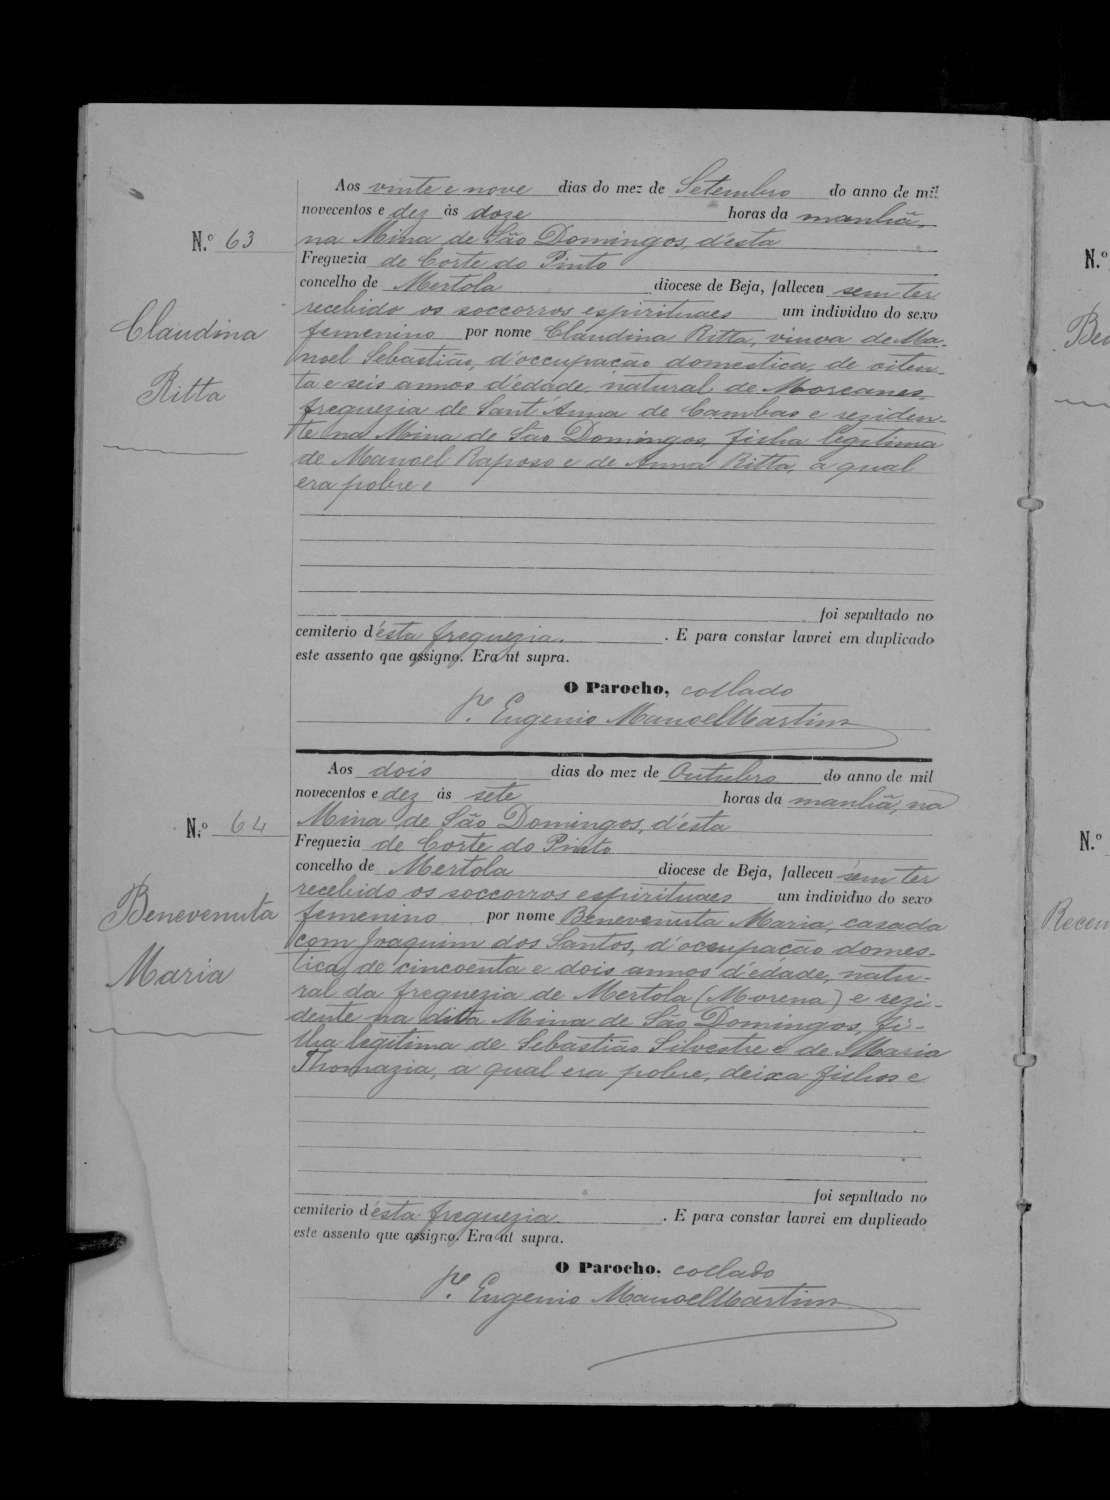 Aos vinte e nove dias do mez de Setembro do anno de mil
novecentos e dez às doze horas da manhã,
N.º 63
na Mina de São Domingos, d'esta
Freguezia de Corte do Pinto
concelho de Mertola diocese de Beja, falleceu sem ter
recebido os soccorros espirituaes um individuo do sexo
Claudina
Ritta
femenino por nome Claudina Ritta, viuva de Ma-
noel Sebastião, d'occupação domestica, de oiten-
ta e seis annos d'edade, natural de Moreanes,
freguezia de Sant'Anna de Cambas e reziden-
te na Mina de São Domingos, filha legitima
de Manoel Raposo e de Anna Ritta, a qual
era pobre e
foi sepultado no
cemiterio d'esta freguezia. E para constar lavrei em duplicado
este assento que assigno. Era ut supra.
O Parocho, collado
P.e Eugenio Manoel Martins
Aos dois dias do mez de Outubro do anno de mil
novecentos e dez ás sete horas da manhã, na
N.º 64
Mina de São Domingos, d'esta
Freguezia de Corte do Pinto
concelho de Mertola diocese de Beja, falleceu sem ter
recebido os soccorros espirituaes um individuo do sexo
Benevenuta
Maria
femenino por nome Benevenuta Maria, casada
com Joaquim dos Santos, d'occupação domes-
tica, de cincoenta e dois annos d'edade, natu-
ral da freguezia de Mertola (Morena) e rezi-
dente na dita Mina de São Domingos, fi-
lha legitima de Sebastião Silvestre e de Maria
Thomazia, a qual era pobre, deixa filhos e
foi sepultado no
cemiterio d'esta freguezia. E para constar lavrei em duplicado
este assento que assigno. Era ut supra.
O Parocho, collado
P.e Eugenio Manoel Martins
N.º
N.º